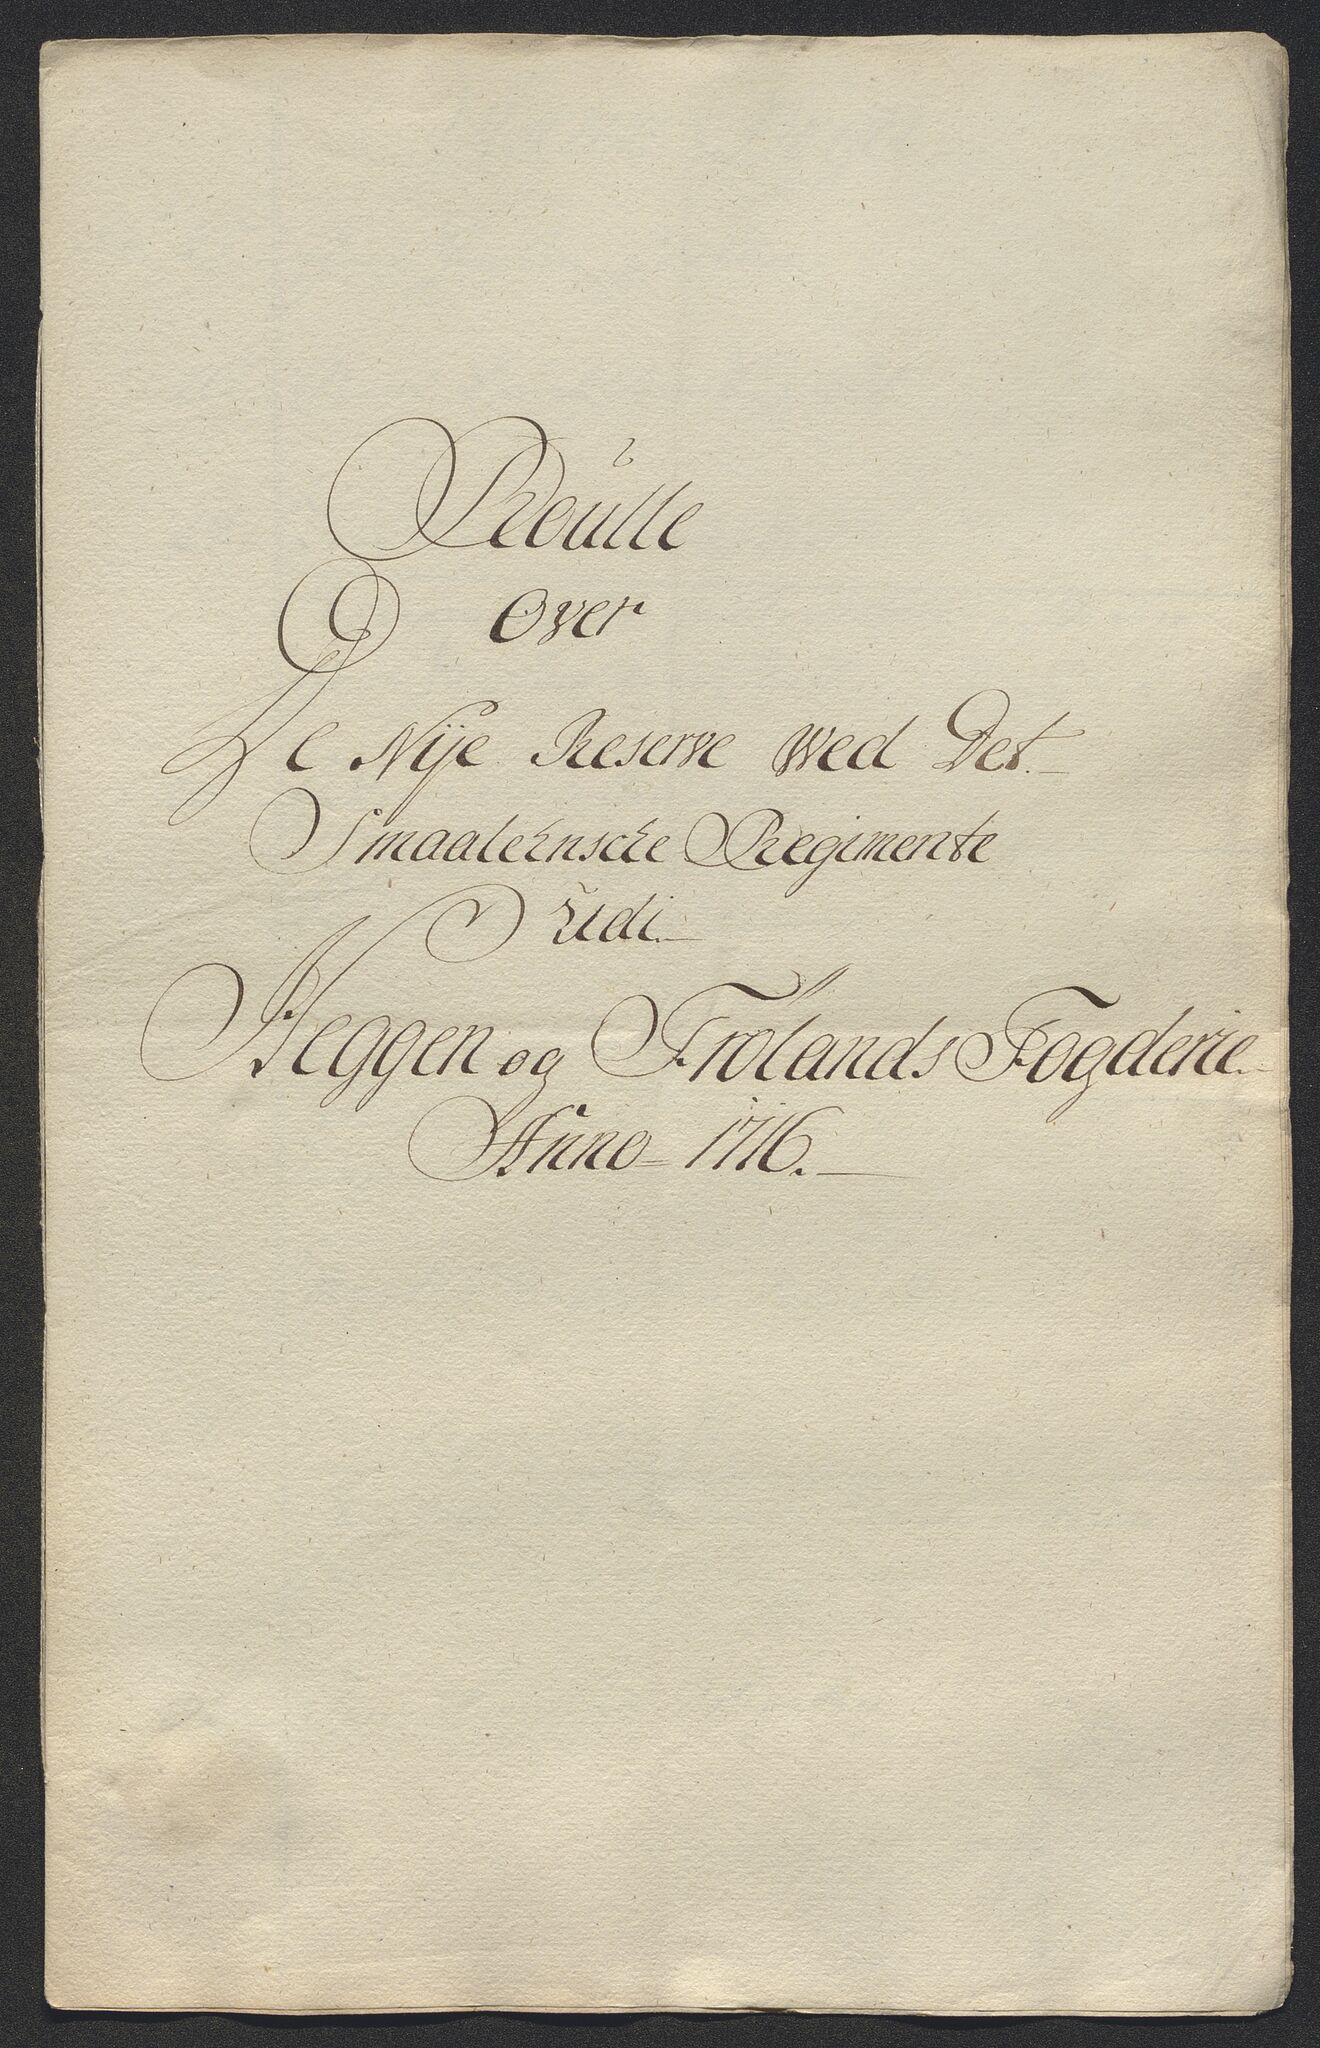 Roulle
Over
De Nÿe Reserve Wed Det.
Smaalehnsche Regimente
Udi.
Heggen og Frolands Fogderie.
Anno 1716.